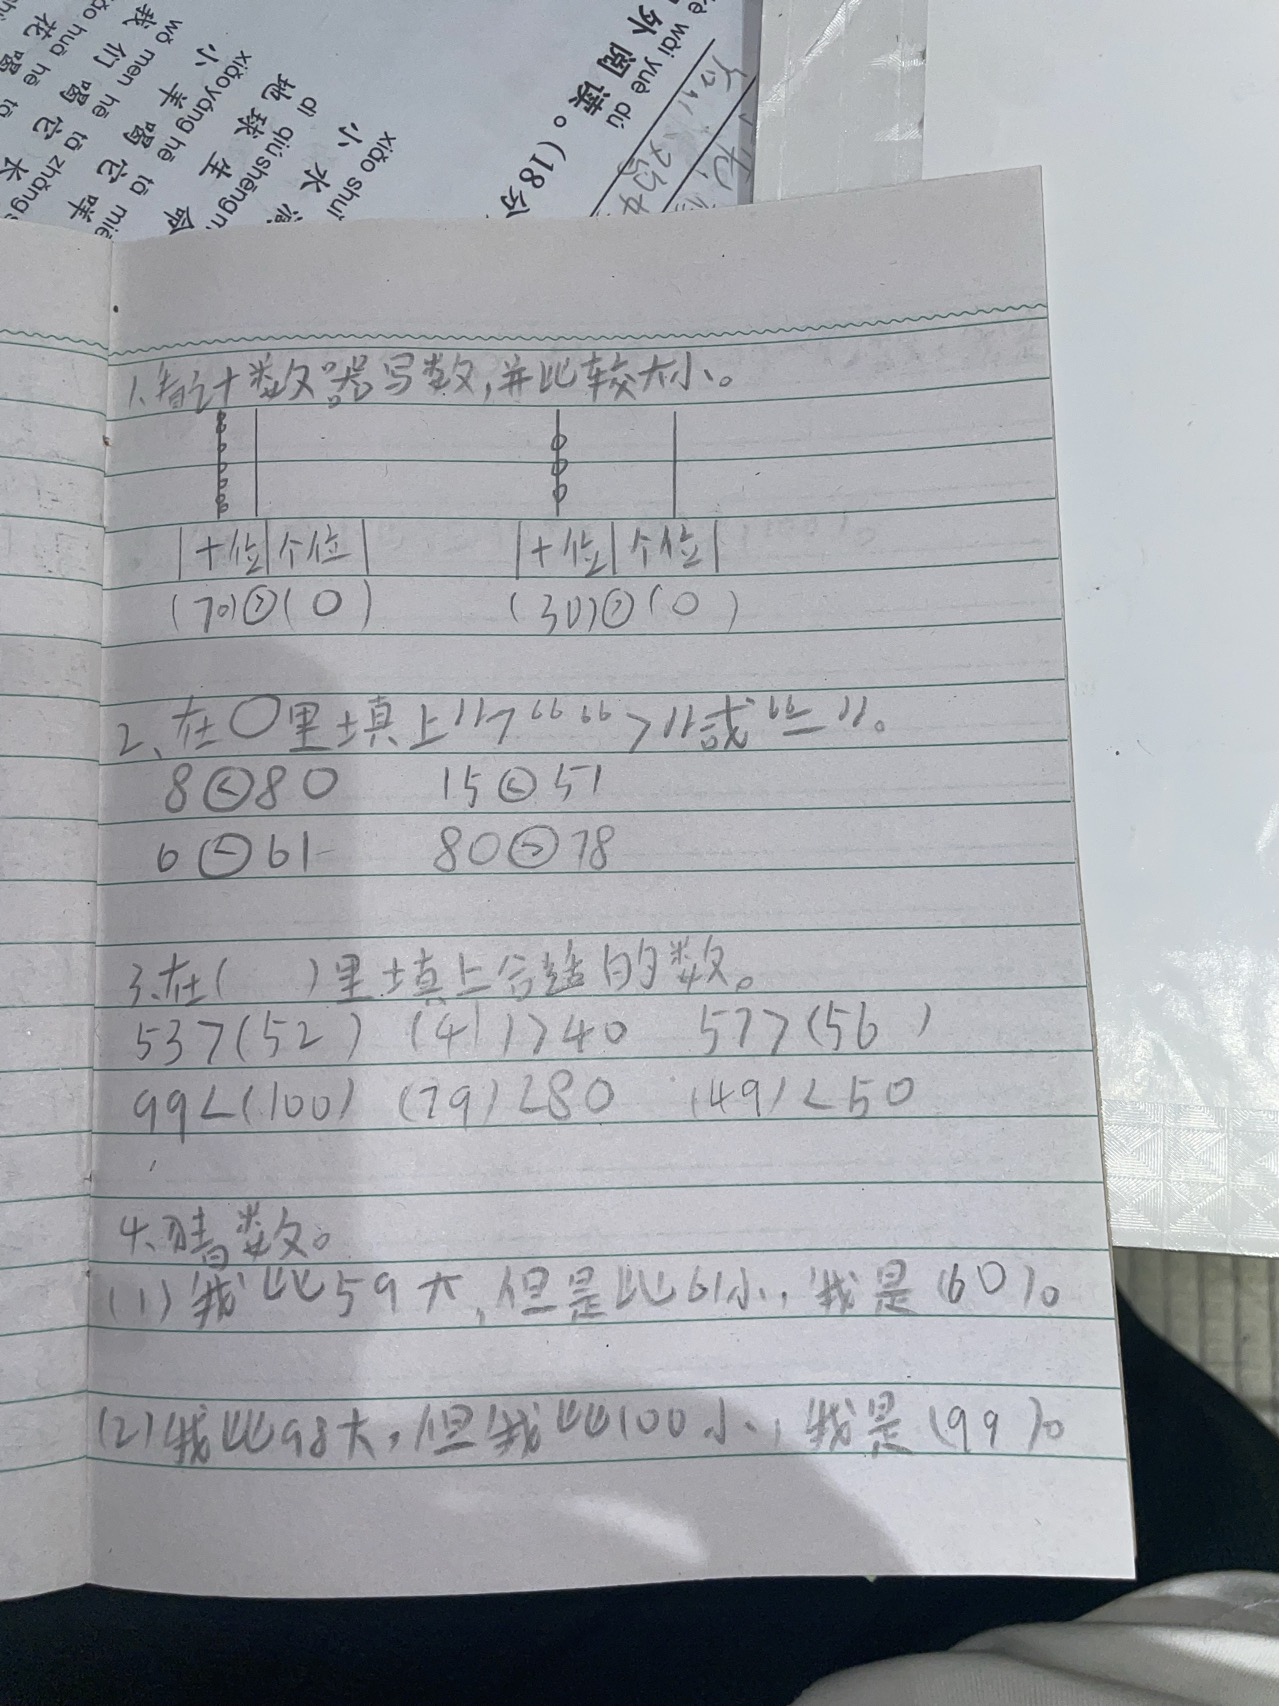 kè wài yuè dú
外阅读。(18分
xiǎo shuǐ
小水滴
dì qiú shēng
地球生命
xiǎo yáng hē tā miē
小羊喝它咩
wǒ men hē tā zhǎng
我们喝它长
xiǎo huā hē tā
花喝
1、看计数器写数,并比较大小。
十位 个位 十位 个位
(70)>(0) (30)>(0)
2、在○里填上"7"">"或"="。
8<80 15<51
6<61 80>78
3、在( )里填上合适的数。
53>(52) (41)>40 57>(56)
99<(100) (79)<80 (49)<50
4、猜数。
(1)我比59大,但是比61小,我是(60)。
(2)我比98大,但我比100小,我是(99)。